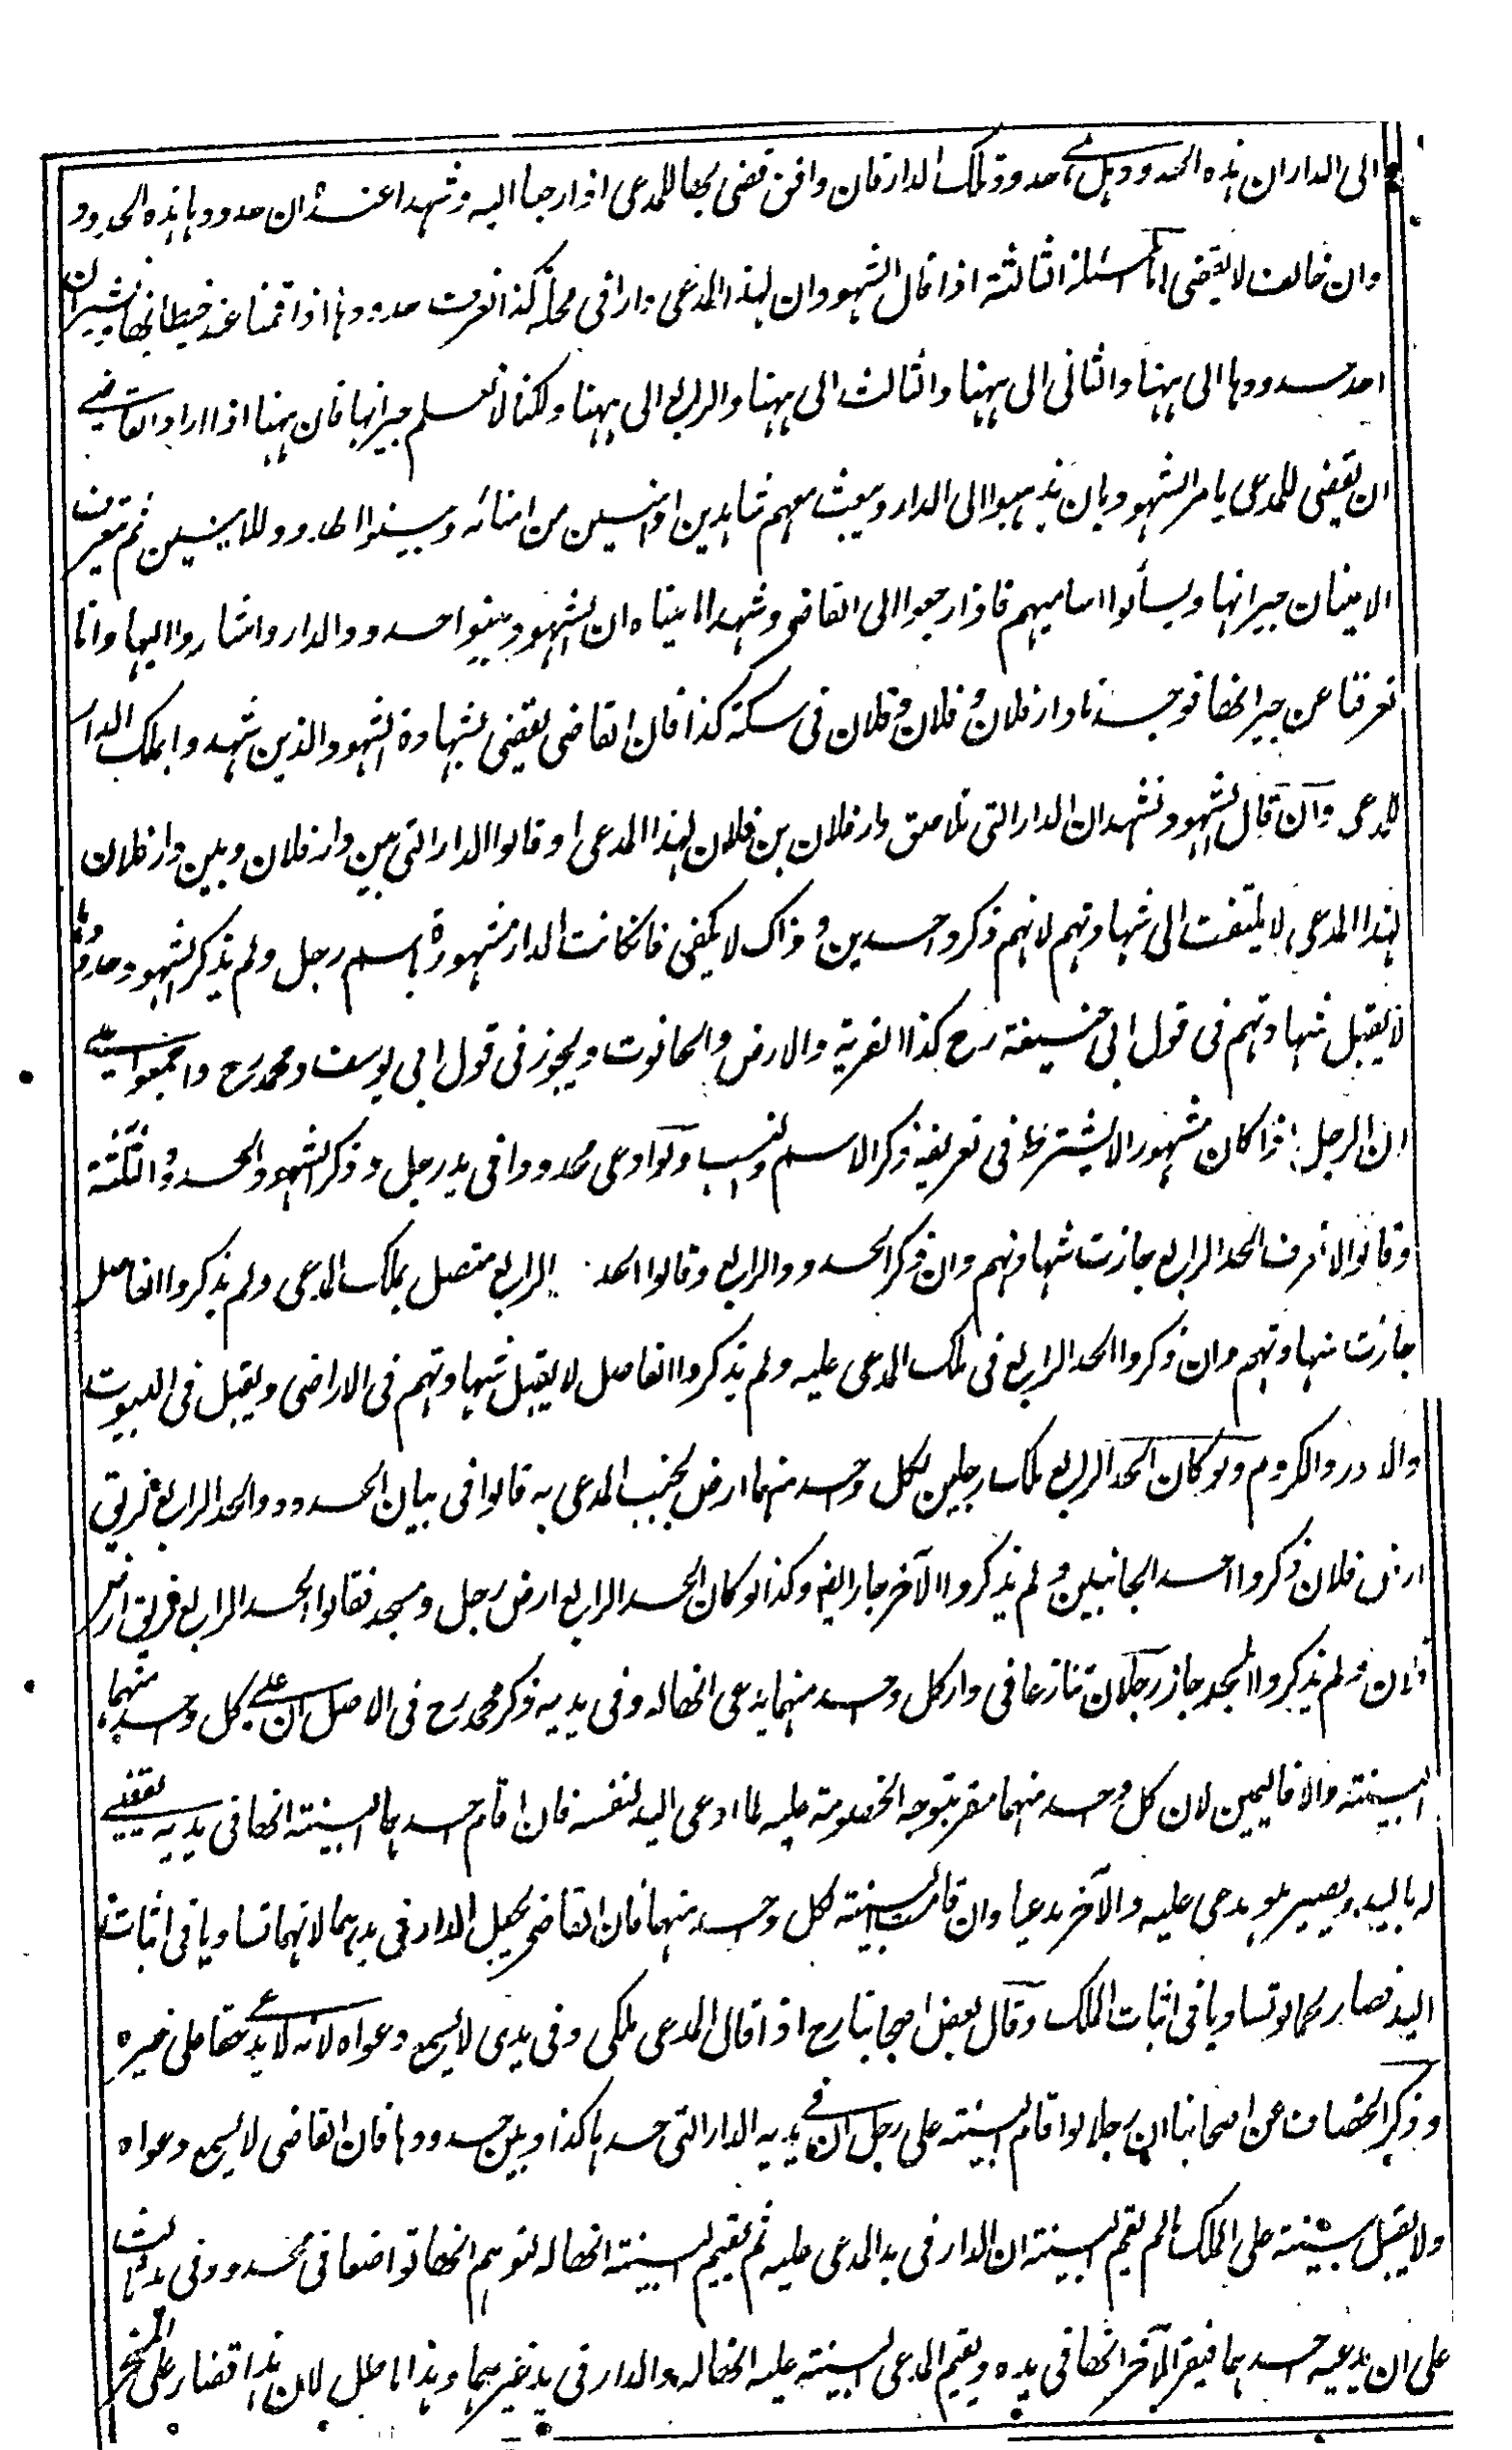 الى الدار ان هذه الحدود هل هى حدود تلك الدار فان وافق قضى بها للمدعى اذا رجعا اليه وشهدا عنده ان حدودها هذه الحدود
وان خالف لا يقضى اما المسئلة الثالثة اذا قال الشهود ان لهذا المدعى دارا فى محلة كذا نعرف حدودها اذا قمنا عند حيطانها نشير ان
احد حدودها الى ههنا والثانى الى ههنا والثالث الى ههنا والرابع الى ههنا ولكنا لا نعلم جيرانها فان ههنا اذا اراد القاضى
ان يقضى للمدعى يامر الشهود بان يذهبوا الى الدار ويبعث معهم شاهدين امينين من امنائه ويبينوا الحدود للامينين ثم يتعرف
الامينان جيرانها ويسألوا اساميهم فاذا رجعوا الى القاضى وشهد الامينان ان الشهود بينوا حدود الدار واشاروا اليها وانا
تعرفنا عن جيرانها فوجدنا دار فلان وفلان وفلان فى سكة كذا فان القاضى يقضى بشهادة الشهود الذين شهدوا بملك الدار
للمدعى وان قال الشهود نشهد ان الدار التى تلاصق دار فلان بن فلان لهذا المدعى او قالوا الدار التى بين دار فلان وبين دار فلان
لهذا المدعى لا يلتفت الى شهادتهم لانهم ذكروا حدين وذاك لا يكفى فان كانت الدار مشهورة باسم رجل ولم يذكر الشهود حدودها
لا يقبل شهادتهم فى قول ابى حنيفة رح كذا القرية والارض والحانوت ويجوز فى قول ابى يوسف ومحمد رح واجمعوا على
ان الرجل اذا كان مشهورا لا يشترط فى تعريفه ذكر الاسم والنسب ولو ادعى محدودا فى يد رجل وذكر الشهود الحدود الثلثة
وقالوا لا نعرف الحد الرابع جازت شهادتهم وان ذكر الحدود الرابع وقالوا الحد الرابع متصل بملك المدعى ولم يذكروا الفاصل
جازت شهادتهم وان ذكروا الحد الرابع فى ملك المدعى عليه ولم يذكروا الفاصل لا يقبل شهادتهم فى الاراضى ويقبل فى البيوت
والادر والكروم ولو كان الحد الرابع ملك رجلين لكل واحد منهما ارض بجنب المدعى به قالوا فى بيان الحدود والحد الرابع لزيق
ارض فلان ذكروا احد الجانبين ولم يذكروا الآخر جاز ايضا وكذا لو كان الحد الرابع ارض رجل ومسجد فقالوا الحد الرابع لزيق ارض
فلان ولم يذكروا المسجد جاز رجلان تنازعا فى دار كل واحد منهما يدعى انها له وفى يديه ذكر محمد رح فى الاصل ان على كل واحد منهما
البينة والا فاليمين لان كل واحد منهما مقر بتوجه الخصومة عليه لما ادعى اليد لنفسه فان اقام احدهما البينة انها فى يديه يقضى
له باليد ويصير هو مدعى عليه والآخر مدعيا وان قامت البينة لكل واحد منهما فان القاضى يجعل الدار فى يدهما لانهما تساويا فى اثبات
اليد فصار كما لو تساويا فى اثبات الملك وقال بعض اصحابنا رح اذا قال المدعى ملكى وفى يدى لا يسمع دعواه لانه لا يدعى حقا على غيره
وذكر الخصاف عن اصحابنا ان رجلا لو اقام البينة على رجل ان فى يديه الدار التى حدها كذا وبين حدودها فان القاضى لا يسمع دعواه
ولا يقبل بينته على الملك ما لم يقم البينة ان الدار فى يد المدعى عليه ثم يقيم البينة انها له لتوهم انهما تواضعا فى محدود فى يد ثالث
على ان يدعيه احدهما فيقر الآخر انها فى يده ويقيم المدعى البينة عليه انها له والدار فى يد غيرهما وهذا باطل لان هذا قضاء على المسخر